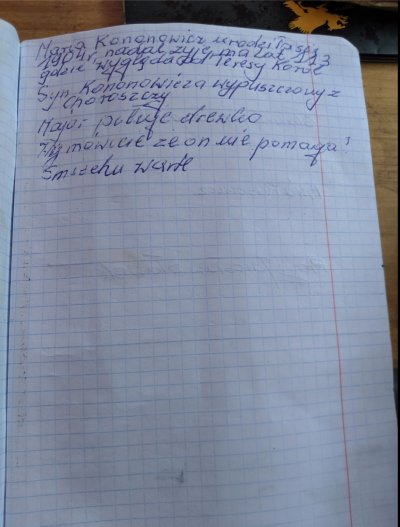 Matka Kononowicz urodziła się
1904r, nadal żyje ma lat 113
gdzie wygląda od Teresy Korol
Syn Kononowicza wypuszczony z
Choroszczy
Major piłuje drewko
Wy mówicie że on nie pomaga?
Śmiechu warte